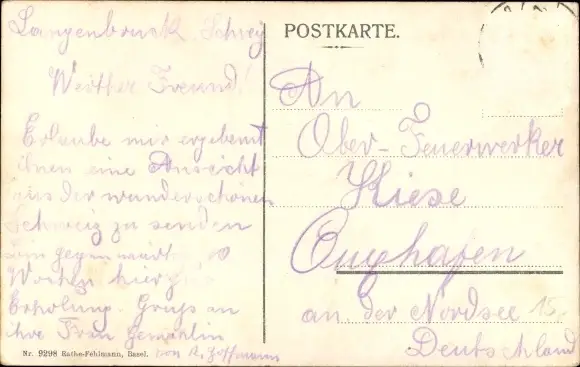 Langenbruck, Schweiz
Werther Freund!
Erlaube mir ergebenst
ihnen eine Ansicht
aus der wunderschönen
Schweiz zu senden
bin gegenwärtig
Wochen hier
Erholung. Gruß an
ihre Frau Gemahlin
von A. Hoffmann
Nr. 9298 Rathe-Fehlmann, Basel.
POSTKARTE.
An
Ober-Feuerwerker
Kiese
Cuxhafen
an der Nordsee 15
Deutschland